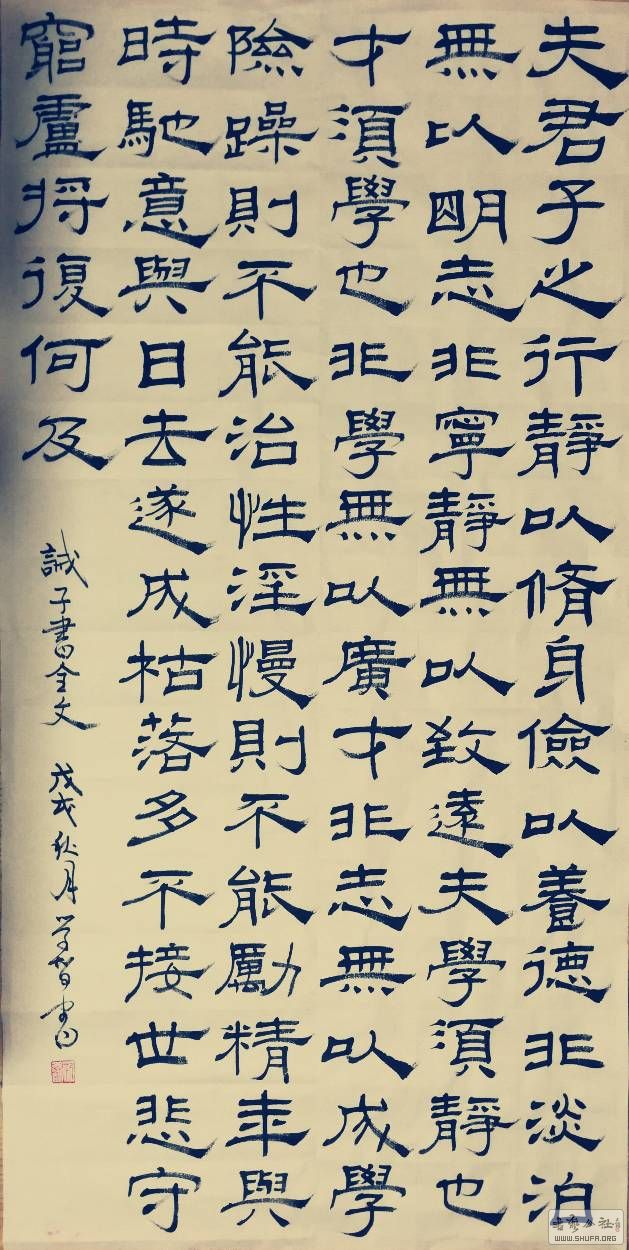 夫君子之行靜以脩身儉以養德非淡泊
無以明志非寧靜無以致遠夫學須靜也
才須學也非學無以廣才非志無以成學
險躁則不能治性淫慢則不能勵精年與
時馳意與日去遂成枯落多不接世悲守
窮廬將復何及
誡子書全文 戊戌秋月
WWW.SHUFA.ORG